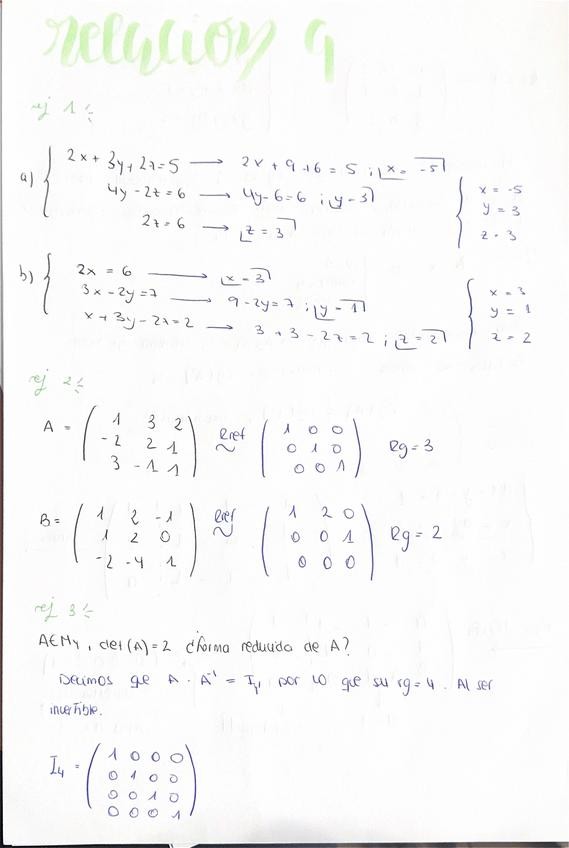 relación 4
ej 1
a) { 2x + 3y + 2z = 5 → 2x + 9 + 6 = 5 ; x = -5
4y - 2z = 6 → 4y - 6 = 6 ; y = 3
2z = 6 → z = 3
{ x = -5
y = 3
z = 3
b) { 2x = 6 → x = 3
3x - 2y = 7 → 9 - 2y = 7 ; y = 1
x + 3y - 2z = 2 → 3 + 3 - 2z = 2 ; z = 2
{ x = 3
y = 1
z = 2
ej 2
A = ( 1 3 2
-2 2 1
3 -1 1 ) Rref ~ ( 1 0 0
0 1 0
0 0 1 ) Rg = 3
B = ( 1 2 -1
1 2 0
-2 -4 1 ) Rref ~ ( 1 2 0
0 0 1
0 0 0 ) Rg = 2
ej 3
A∈M4, det(A) = 2 ¿forma reducida de A?
Decimos que A · A⁻¹ = I4, por lo que su rg = 4. Al ser
invertible.
I4 = ( 1 0 0 0
0 1 0 0
0 0 1 0
0 0 0 1 )